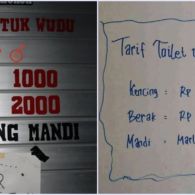 TUK WUDU
1000
2000
NG MANDI
Tarif Toilet
Kencing = Rp
Berak = Rp
Mandi =